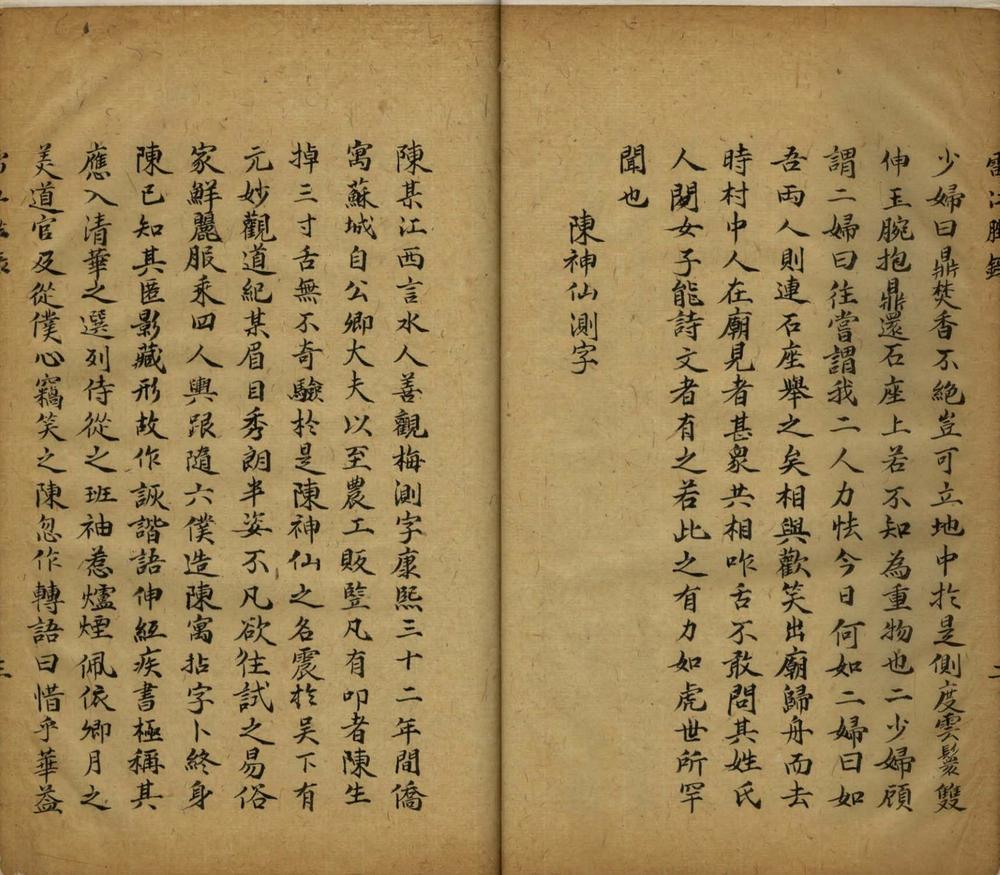 少婦曰鼎焚香不絕豈可立地中扵是側度雲鬟雙
伸玉腕抱鼎還石座上若不知為重物也二少婦顧
謂二婦曰往嘗謂我二人力怯今日何如二婦曰如
吾両人則連石座舉之矣相與歡笑出廟歸舟而去
時村中人在廟見者甚衆共相咋舌不敢問其姓氏
人閒女子能詩文者有之若此之有力如虎世所罕
聞也
陳神仙測字
陳某江西言水人善觀梅測字康熙三十二年間僑
寓蘇城自公卿大夫以至農工販豎凡有叩者陳生
掉三寸舌無不奇驗扵是陳神仙之名震扵吴下有
元妙觀道紀某眉目秀朗丰姿不凡欲往試之易俗
家鮮麗服乘四人輿跟隨六僕造陳寓拈字卜終身
陳已知其匿影藏形故作詼諧語伸紙疾書極稱其
應入清華之選列侍從之班袖惹爐煙佩依卿月之
美道官及從僕心竊笑之陳忽作轉語曰惜乎華益